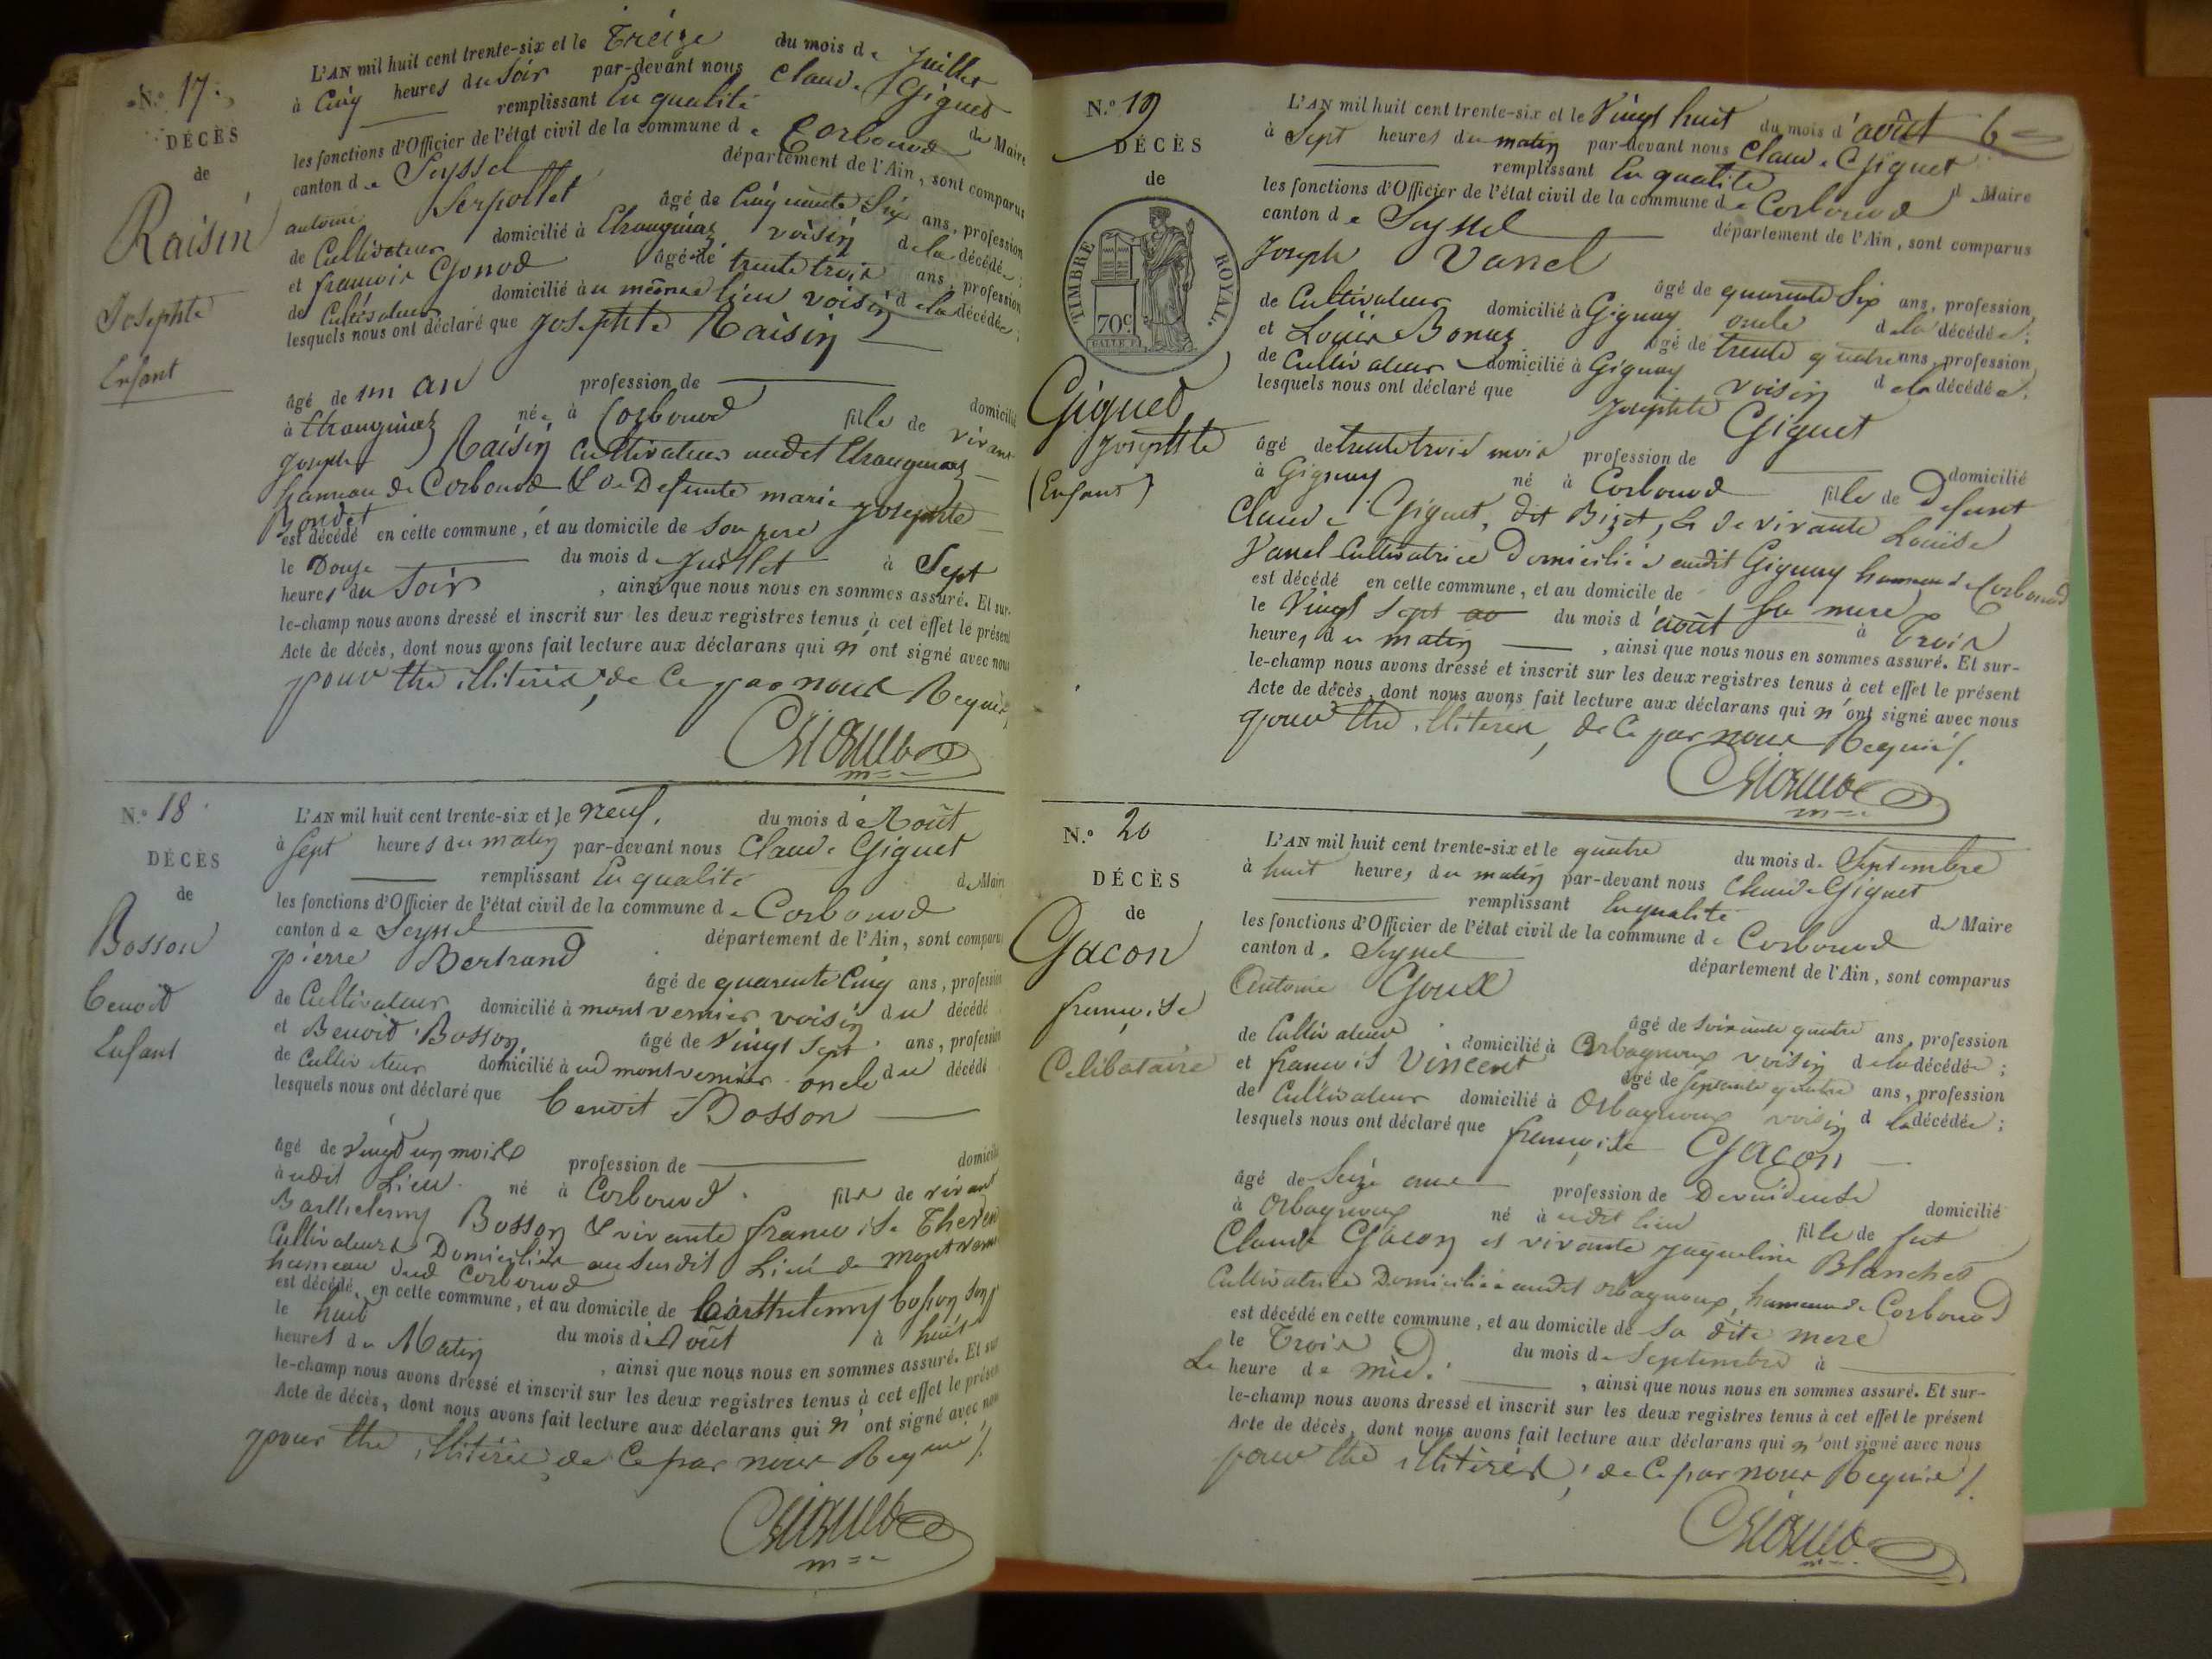 N.º 17.
DÉCÈS
de
Raisin
Josephte
Enfant
L'AN mil huit cent trente-six et le Treize du mois de Juillet
à Cinq heures du Soir par-devant nous Claude Giguet
remplissant En qualité de Maire
les fonctions d'Officier de l'état civil de la commune de Corbonod
canton de Seyssel département de l'Ain, sont comparus
antoine Serpollet âgé de Cinquante Six ans, profession
de Cultivateur domicilié à Etranginaz voisin de la décédée;
et francois Gonod âgé de trente trois ans, profession
de Cultivateur domicilié au même lieu voisin de la décédée;
lesquels nous ont déclaré que Josephte Raisin
âgé de un an profession de domicilié
à Etranginaz née à Corbonod fille de vivant
Joseph Raisin Cultivateur audit Etranginaz
hameau de Corbonod & De Defunte marie Josephte
Bondet
est décédé en cette commune, et au domicile de son pere
le Douze du mois de Juillet à Sept
heures du Soir, ainsi que nous nous en sommes assuré. Et sur-
le-champ nous avons dressé et inscrit sur les deux registres tenus à cet effet le présent
Acte de décès, dont nous avons fait lecture aux déclarans qui n'ont signé avec nous
pour être illitéréx, de Ce par nous Requis
Giguet
m=e
N.º 18
DÉCÈS
de
Bosson
benoit
Enfant
L'AN mil huit cent trente-six et le neuf. du mois d'Août
à Sept heures du matin par-devant nous Claude Giguet
remplissant En qualité de Maire
les fonctions d'Officier de l'état civil de la commune de Corbonod
canton de Seyssel département de l'Ain, sont comparus
pierre Bertrand
âgé de quarante Cinq ans, profession
de Cultivateur domicilié à montvernier voisin du décédé
et Benoit Bosson, âgé de Vingt Sept ans, profession
de Cultivateur domicilié à ud montvernier oncle du décédé
lesquels nous ont déclaré que benoit Bosson
âgé de Vingt un mois profession de domicilié
à udit Lieu né à Corbonod fils de vivant
Barthelemy Bosson & vivante francoise
Cultivateurs Domiciliés au susdit Lieu de montvernier
hameau dud Corbonod
est décédé, en cette commune, et au domicile de barthelemy bosson son p
le huit du mois d'Août à huit
heures du Matin, ainsi que nous nous en sommes assuré. Et sur-
le-champ nous avons dressé et inscrit sur les deux registres tenus à cet effet le présent
Acte de décès, dont nous avons fait lecture aux déclarans qui n'ont signé avec nous
pour être illitéréx de Ce par nous Requis/.
Giguet
m=e
N.º 19
DÉCÈS
de
TIMBRE ROYAL.
70c.
Giguet
Josephte
(Enfant)
6
L'AN mil huit cent trente-six et le Vingt huit du mois d'août
à Sept heures du matin par-devant nous Claude Giguet
remplissant En qualité de Maire
les fonctions d'Officier de l'état civil de la commune de Corbonod
canton de Seyssel département de l'Ain, sont comparus
Joseph Vanel
âgé de quarante Six ans, profession
de Cultivateur domicilié à Gignay oncle de la décédée;
et Louis Bonaz âgé de trente quatre ans, profession
de Cultivateur domicilié à Gignay voisin de la décédée.
lesquels nous ont déclaré que Josephte Giguet
âgé de trente trois mois profession de domicilié
à Gignay né à Corbonod fille de Defunt
Claude Giguet, dit Bizet, & De vivante Louise
Vanel Cultivatrice Domiciliée audit Gignay hameau de Corbonod
est décédé en cette commune, et au domicile de Sa mere
le Vingt Sept ao du mois d'août à Trois
heures du matin, ainsi que nous nous en sommes assuré. Et sur-
le-champ nous avons dressé et inscrit sur les deux registres tenus à cet effet le présent
Acte de décès, dont nous avons fait lecture aux déclarans qui n'ont signé avec nous
pour être illitéréx, de Ce par nous Requis/.
Giguet
m=e
N.º 20
DÉCÈS
de
Gacon
francoise
Celibataire
L'AN mil huit cent trente-six et le quatre du mois de Septembre
à huit heures du matin par-devant nous Claude Giguet
remplissant En qualité de Maire
les fonctions d'Officier de l'état civil de la commune de Corbonod
canton de Seyssel département de l'Ain, sont comparus
Antoine Goux
âgé de Soixante quatre ans, profession
de Cultivateur domicilié à Orbagnoux voisin de la décédée;
et francois Vincent âgé de Septante quatre ans, profession
de Cultivateur domicilié à Orbagnoux voisin de la décédée;
lesquels nous ont déclaré que francoise Gacon
âgé de Seize ans profession de Devuideuse domicilié
à Orbagnoux né à udit lieu fille de fut
Claude Gacon et vivante Jaqueline Blanchet
Cultivatrice Domiciliée audit Orbagnoux, hameau de Corbonod
est décédé en cette commune, et au domicile de Sa dite mere
le Trois du mois de Septembre à
Le heure de midi, ainsi que nous nous en sommes assuré. Et sur-
le-champ nous avons dressé et inscrit sur les deux registres tenus à cet effet le présent
Acte de décès, dont nous avons fait lecture aux déclarans qui n'ont signé avec nous
pour être illitéréx, de Ce par nous Requis/.
Giguet
m=e